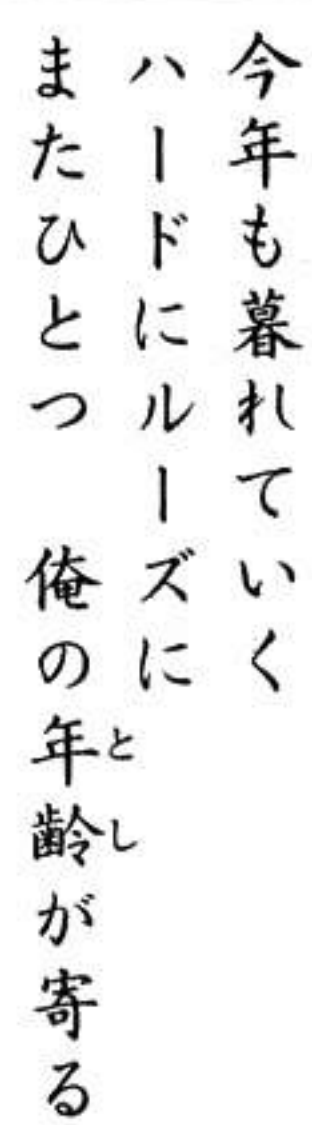 今年も暮れていく
ハードにルーズに
またひとつ　俺の年齢が寄る
とし